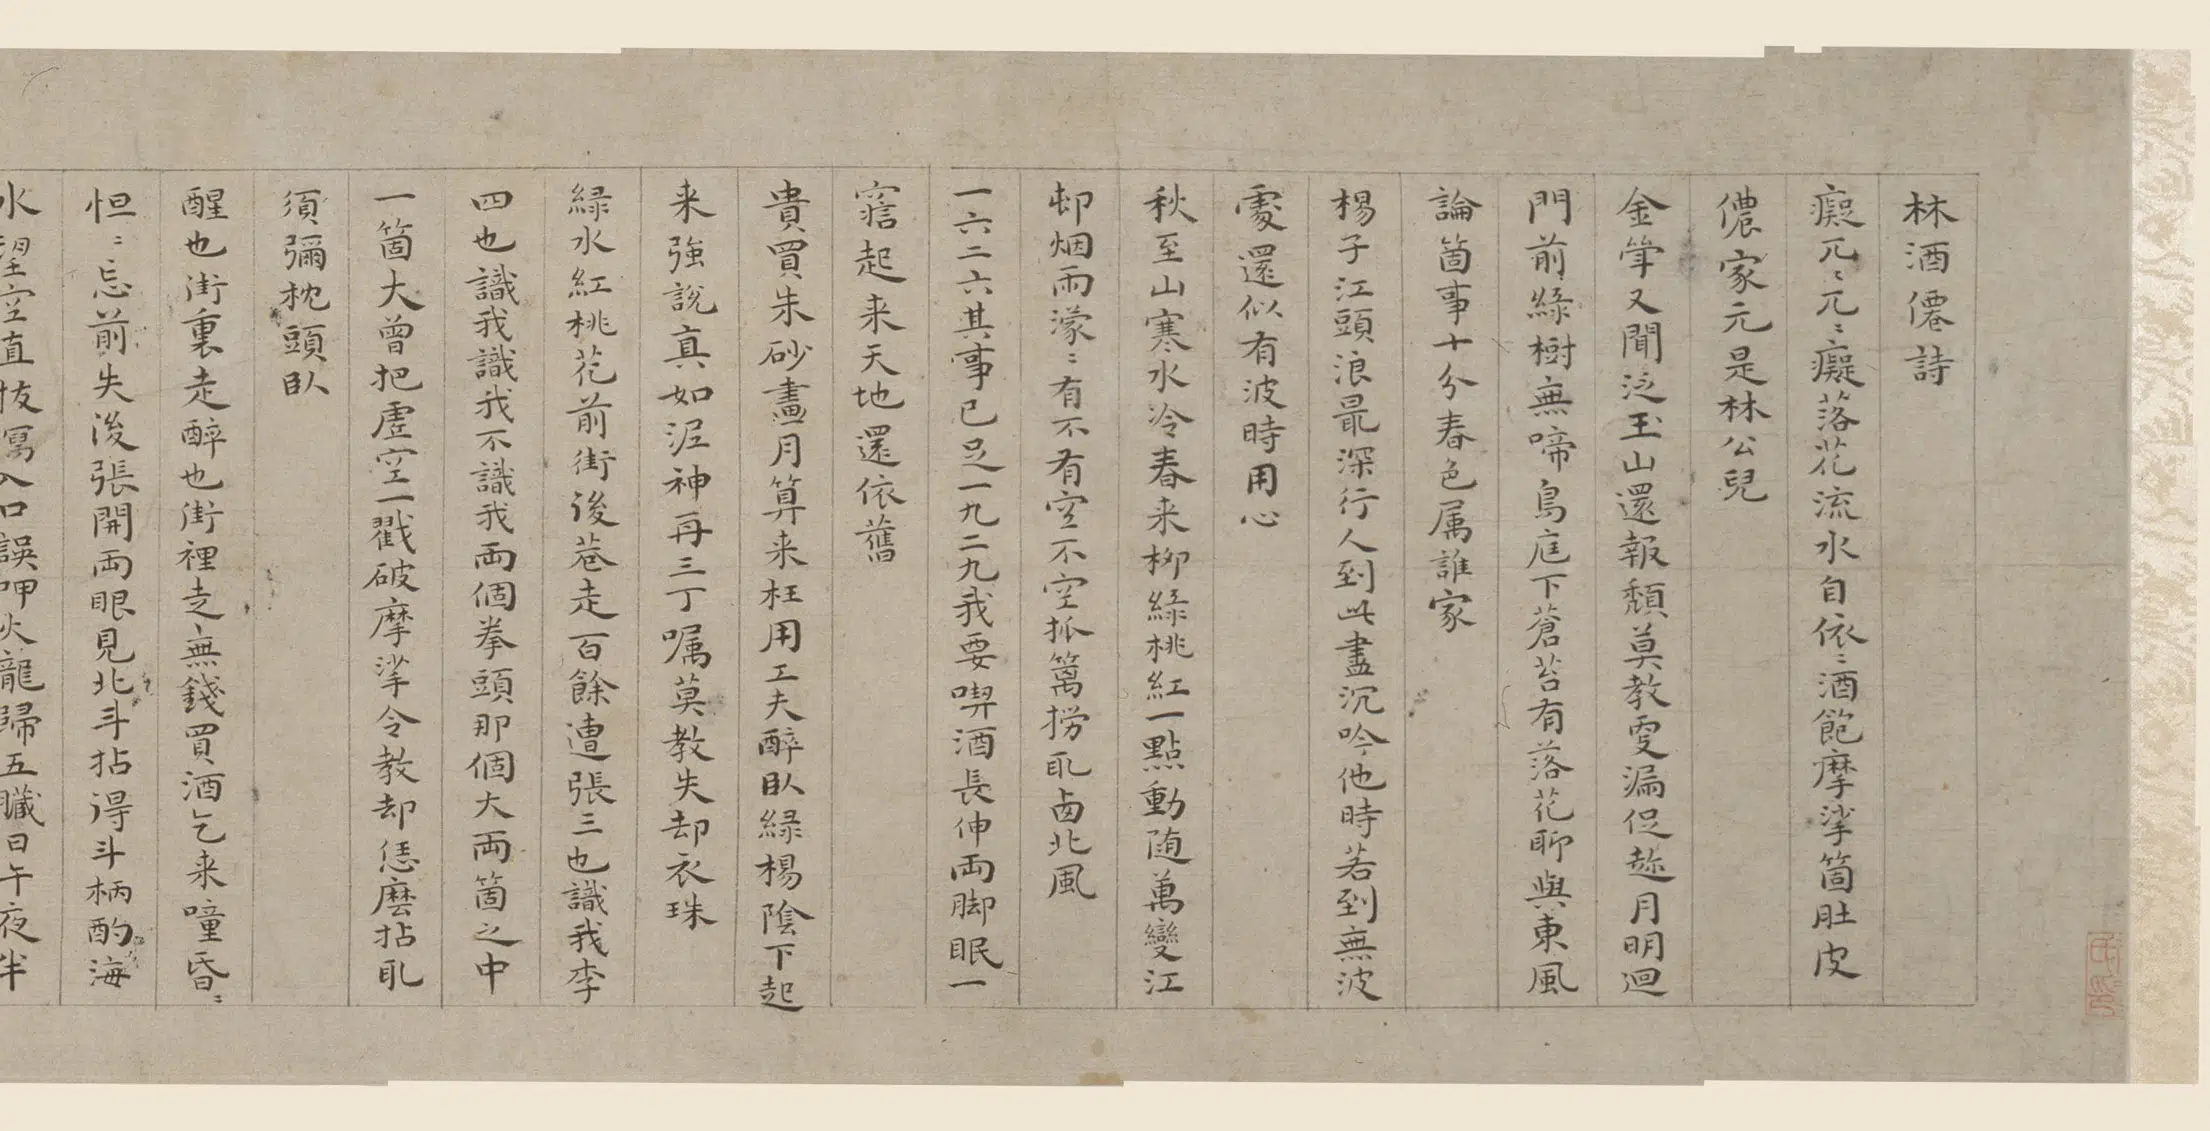 林酒僊詩
癡兀〻兀〻癡落花流水自依〻酒飽摩挲箇肚皮
儂家元是林公兒
金斝又聞泛玉山還報頹莫教更漏促趂月明迴
門前緑樹無啼鳥庭下蒼苔有落花聊與東風
論箇事十分春色属誰家
楊子江頭浪最深行人到此盡沉吟他時若到無波
處還似有波時用心
秋至山寒水冷春来柳緑桃紅一點動随萬變江
邨烟雨濛〻有不有空不空笊篱撈取西北風
一六二六其事已足一九二九我要喫酒長伸兩脚眠一
寤起来天地還依舊
貴買朱砂畫月算来枉用工夫醉臥緑楊陰下起
来強說真如泥神再三丁嘱莫教失却衣珠
緑水紅桃花前街後巷走百餘遭張三也識我李
四也識我識我不識我兩個拳頭那個大兩箇之中
一箇大曾把虛空一戳破摩挲令教却恁麽拈取
須彌枕頭臥
醒也街裏走醉也街裡走無錢買酒乞来噇昏〻
怛〻忘前失後張開兩眼見北斗拈得斗柄酌海
水望空直抜寫入口誤呷火龍歸五臟日午夜半